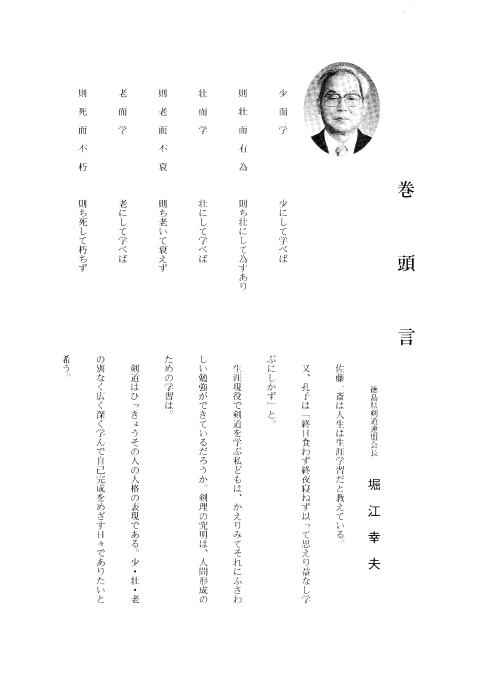 巻頭言
徳島県剣道連盟会長
堀江幸夫
少而学　少にして学べば
則壮而有為　則ち壮にして為すあり
壮而学　壮にして学べば
則老而不衰　則ち老いて衰えず
老而学　老にして学べば
則死而不朽　則ち死して朽ちず
佐藤一斎は人生は生涯学習だと教えている。
又、孔子は「終日食わず終夜寝ねず以って思えり益なし学
ぶにしかず」と。
生涯現役で剣道を学ぶ私どもは、かえりみてそれにふさわ
しい勉強ができているだろうか。剣理の究明は、人間形成の
ための学習は。
剣道はひっきょうその人の人格の表現である。少・壮・老
の別なく広く深く学んで自己完成をめざす日々でありたいと
希う。